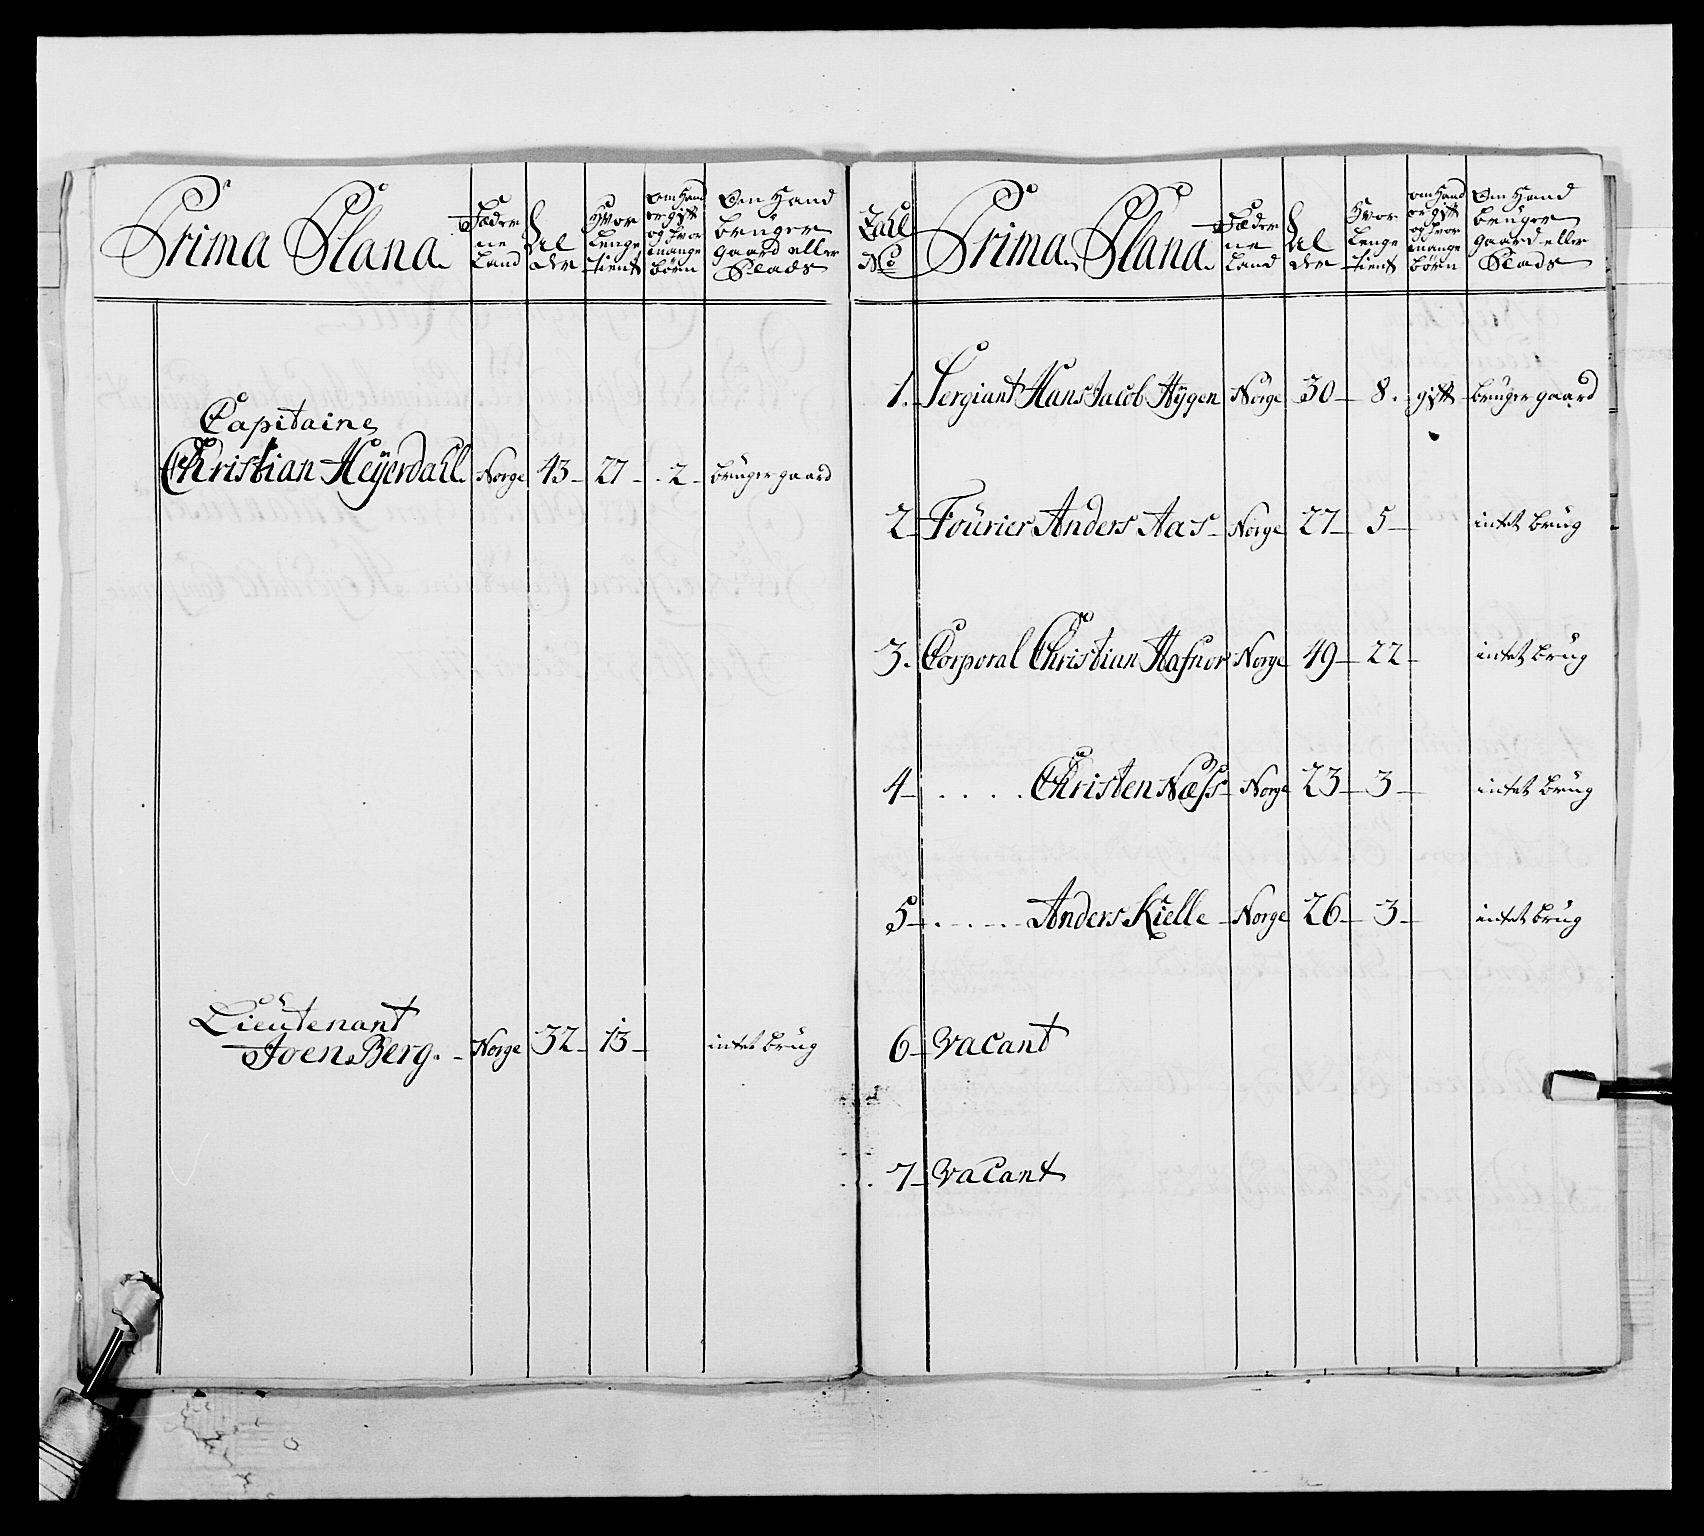 Prima Plana. Fæderneland Alder Hvor lenge tient om Hand er gift og hvor mange börn Om Hand bruger gaard eller Plads
Capitaine
Christian Heÿerdahl. Norge 43 27 2 bruger gaard
Lieutenant
Joen Berg. Norge 32 13 intet brug
Tall No Prima Plana. Fæderneland Alder Hvor lenge tient om Hand er gift og hvor mange börn Om Hand bruger gaard eller Plads
1. Sergiant Hans Jacob Hÿgen Norge 30 8. gift bruger gaard
2 Fourier Anders Aas Norge 27 5 intet brug
3. Corporal Christian Hafnor Norge 49 22 intet brug
4 . . . . Christen Næss Norge 23 3 intet brug
5 . . . . Anders Kielle Norge 26 3 intet brug
6 vacant
7 vacant